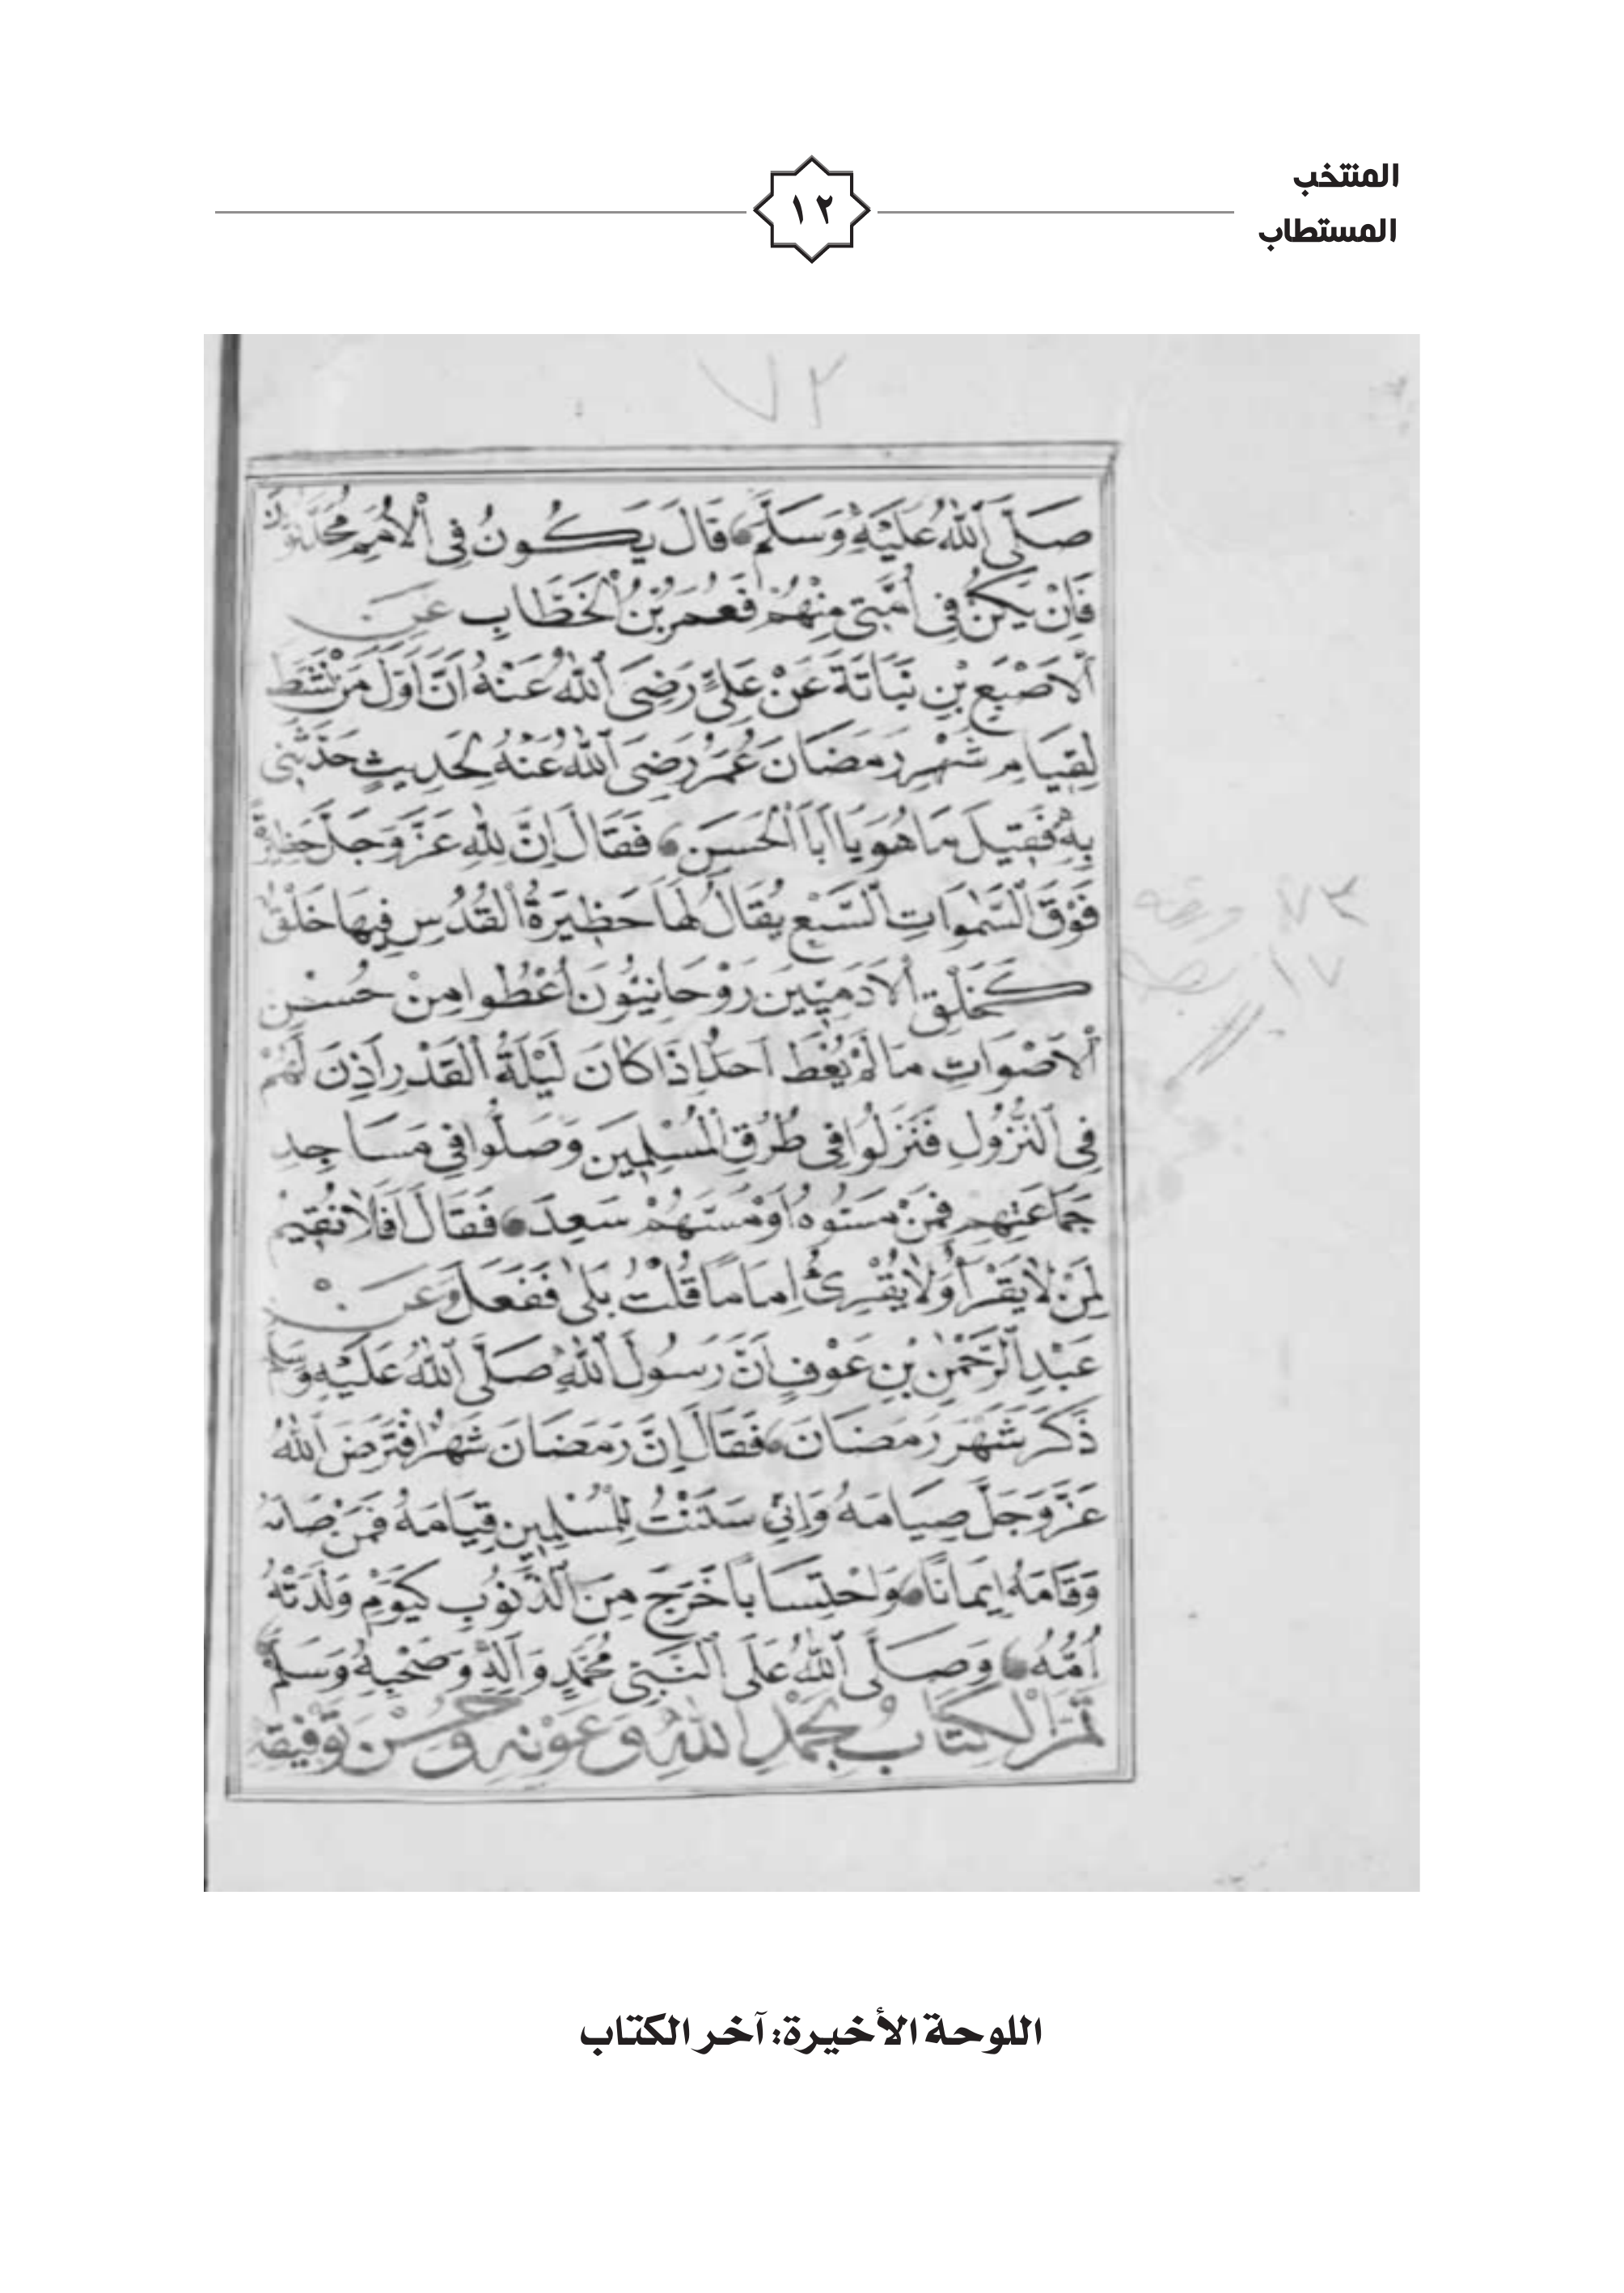 المنتخب
المستطاب
١٢
٧٢
صَلَّى ٱللّٰهُ عَلَيْهِ وَسَلَّمَ قَالَ يَكُونُ فِى ٱلْأُمَمِ مُحَدَّثُونَ
فَاِنْ يَكُنْ فِى اُمَّتِى مِنْهُمْ فَعُمَرُ بْنُ الْخَطَّابِ عَنِ
ٱلْاَصْبَعِ بْنِ نَبَاتَةَ عَنْ عَلِىٍّ رَضِىَ ٱللّٰهُ عَنْهُ اَنَّ اَوَّلَ مَنْ نَشَطَ
لِقِيَامِ شَهْرِ رَمَضَانَ عُمَرُ رَضِىَ ٱللّٰهُ عَنْهُ لِحَدِيثٍ حَدَّثَنِى
بِهِ فَقِيلَ مَا هُوَ يَا اَبَا الْحَسَنِ فَقَالَ اِنَّ لِلّٰهِ عَزَّ وَجَلَّ حَظِيرَةً
فَوْقَ ٱلسَّمٰوَاتِ ٱلسَّبْعِ يُقَالُ لَهَا حَظِيرَةُ الْقُدُسِ فِيهَا خَلْقٌ
كَخَلْقِ ٱلْاٰدَمِيِّينَ رَوْحَانِيُّونَ اُعْطُوا مِنْ حُسْنِ
ٱلْاَصْوَاتِ مَا لَمْ يُعْطَ اَحَدٌ اِذَا كَانَ لَيْلَةُ ٱلْقَدْرِ اَذِنَ لَهُمْ
فِى ٱلنُّزُولِ فَنَزَلُوا فِى طُرُقِ الْمُسْلِمِينَ وَصَلُّوا فِى مَسَاجِدِ
جَمَاعَتِهِمْ فَمَنْ مَسُّوهُ اَوْ مَسَّهُمْ سَعِدَ فَقَالَ اَفَلَا نُقِيمُ
لِمَنْ لَا يَقْرَأُ وَلَا يُقْرِئُ اِمَامًا قُلْتُ بَلٰى فَفَعَلَ وَعَنْ
عَبْدِ ٱلرَّحْمٰنِ بْنِ عَوْفٍ اَنَّ رَسُولَ ٱللّٰهِ صَلَّى ٱللّٰهُ عَلَيْهِ وَسَلَّمَ
ذَكَرَ شَهْرَ رَمَضَانَ فَقَالَ اِنَّ رَمَضَانَ شَهْرٌ افْتَرَضَ ٱللّٰهُ
عَزَّ وَجَلَّ صِيَامَهُ وَاِنِّى سَنَنْتُ لِلْمُسْلِمِينَ قِيَامَهُ فَمَنْ صَامَهُ
وَقَامَهُ اِيمَانًا وَاحْتِسَابًا خَرَجَ مِنَ ٱلذُّنُوبِ كَيَوْمِ وَلَدَتْهُ
اُمُّهُ وَصَلَّى ٱللّٰهُ عَلَى ٱلنَّبِىِّ مُحَمَّدٍ وَآلِهِ وَصَحْبِهِ وَسَلَّمَ
تَمَّ الْكِتَابُ بِحَمْدِ اللّٰهِ وَعَوْنِهِ وَحُسْنِ تَوْفِيقِهِ
٧٣ ورقه
١٧
اللوحة الأخيرة: آخر الكتاب